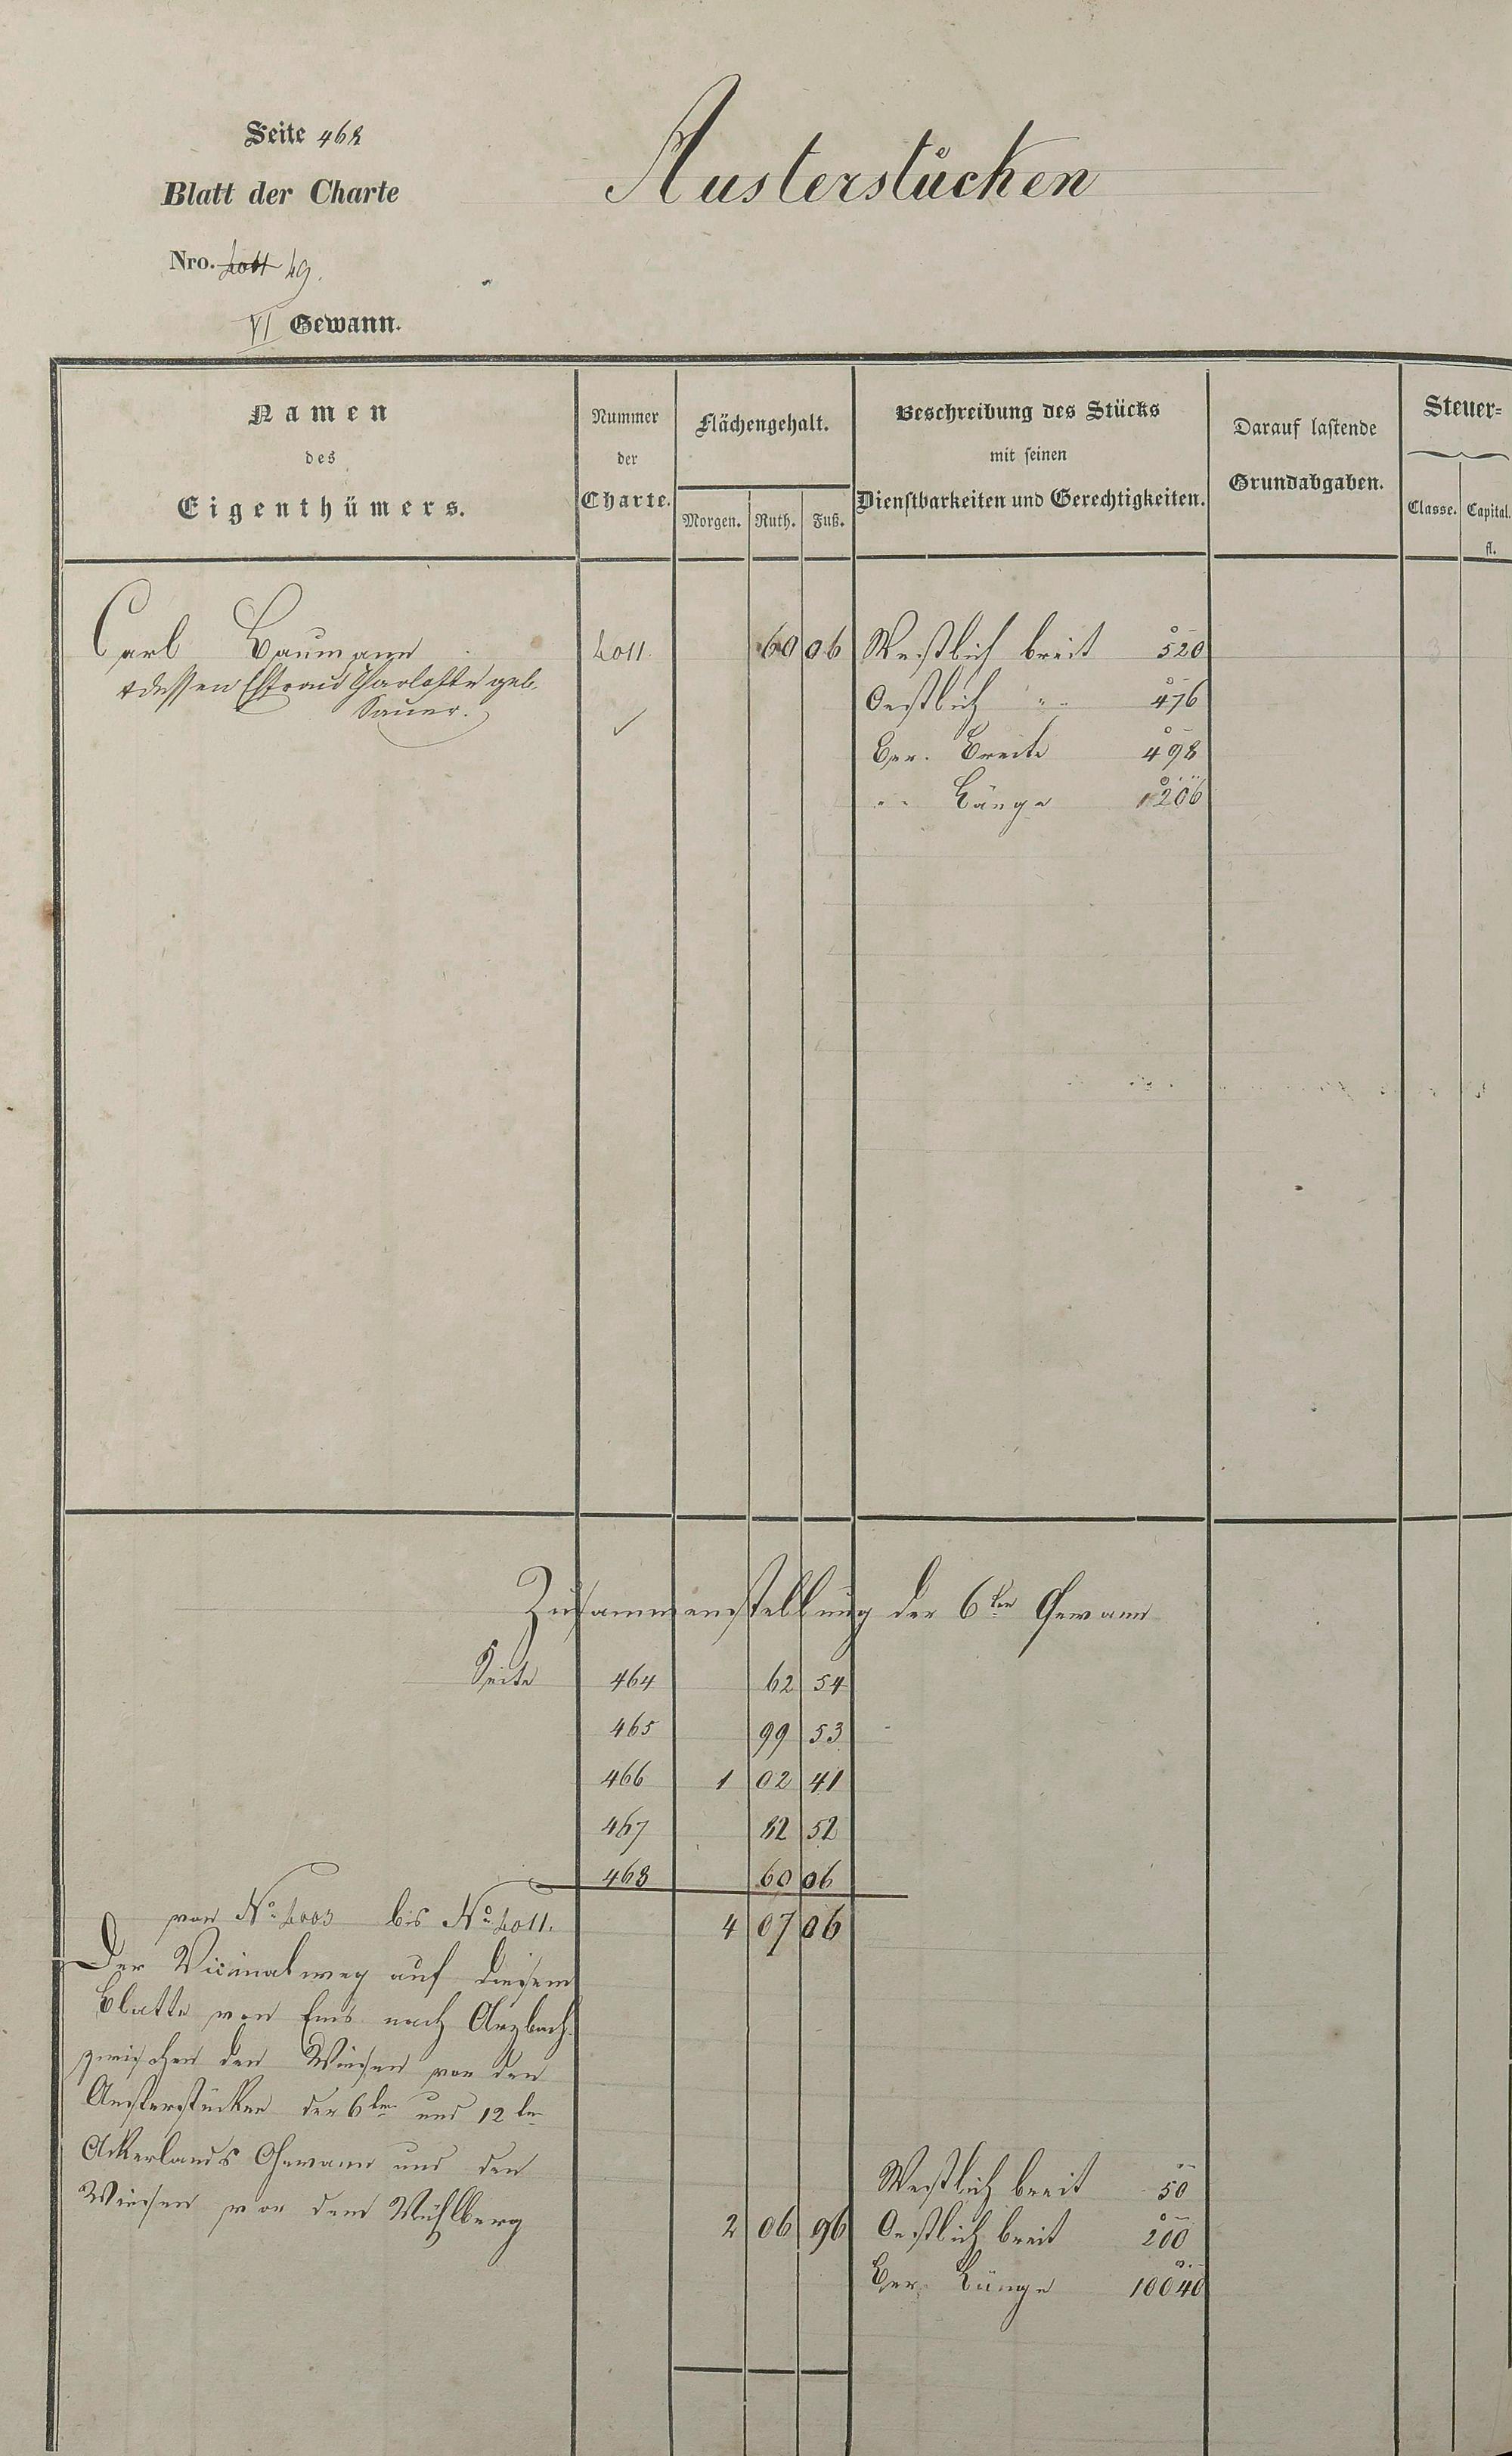 Seite 468
Austerstücken
Blatt der Charte
Nro. 4011 49.
VI Gewann.
Namen des Eigenthümers.
Nummer der Charte.
Flächengehalt.
Morgen. Ruth. Fuß.
Beschreibung des Stücks
mit seinen
Dienstbarkeiten und Gerechtigkeiten.
Darauf lastende
Grundabgaben.
Steuer=
Classe. Capital.
fl.
Carl Baumann 4011. 60 06 Westlich breit 520
& dessen Ehefrau Charlotte geb. Oestlich " 476
Sauer. ✓
Ber. Breite 498
" Länge 1206
Zusammenstellung der 6ten Gewann
Seite 464 62 54
465 99 53
466 1 02 41
467 82 52
468 60 06
von No. 4003 bis No. 4011. 4 07 06
Der Vicinalweg auf diesem
Blatte von Ems nach Arzbach
zwischen den Wiesen von den
Austerstücken der 6ten und 12ten
Ackerlands Gewann und den
Wiesen vor dem Mühlberg
Westlich breit 50
2 06 96 Oestlich breit 200
Ber. Länge 10040